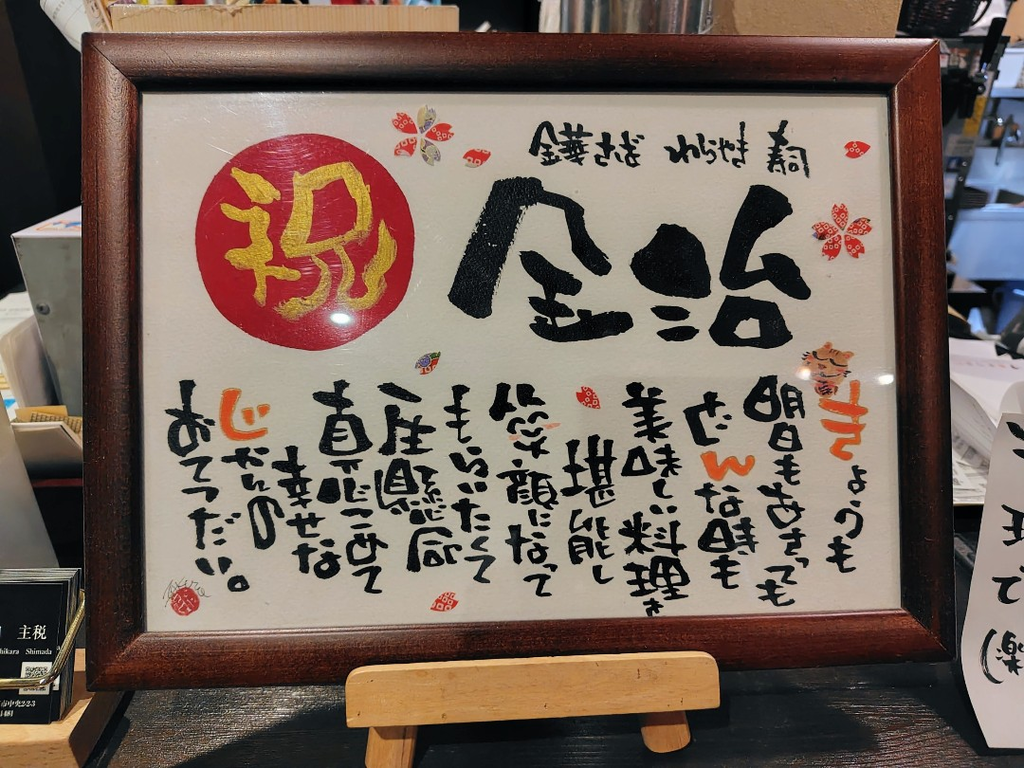 金華さば わらやき 寿司
金治
祝
きょうも
明日もあさっても
どんな時も
美味しい料理を
堪能し
笑顔になって
もらいたくて
一生懸命
真心こめて
幸せな
じかんの
おてつだい。
主税
hikara Shimada
市中央2-2-3